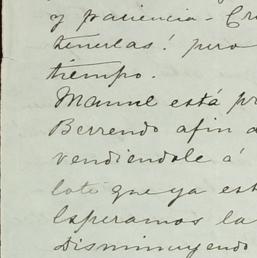 y paciencia - Cr
tenerlas! pero
tiempo.
Manuel está pr
Berrendo afin d
vendiendole á
lote que ya est
Esperamos la
disminuyendo